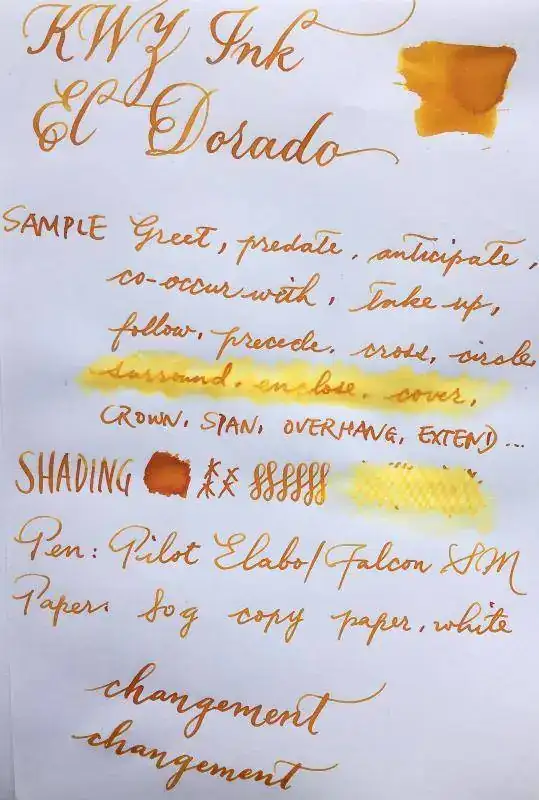 KWZ Ink
El Dorado
SAMPLE Greet, predate, anticipate,
co-occur with, Take up,
follow, precede, cross, circle,
surround, enclose, cover,
CROWN, SPAN, OVERHANG, EXTEND...
SHADING
Pen: Pilot Elabo/Falcon SM
Paper: 80g copy paper, white
changement
changement